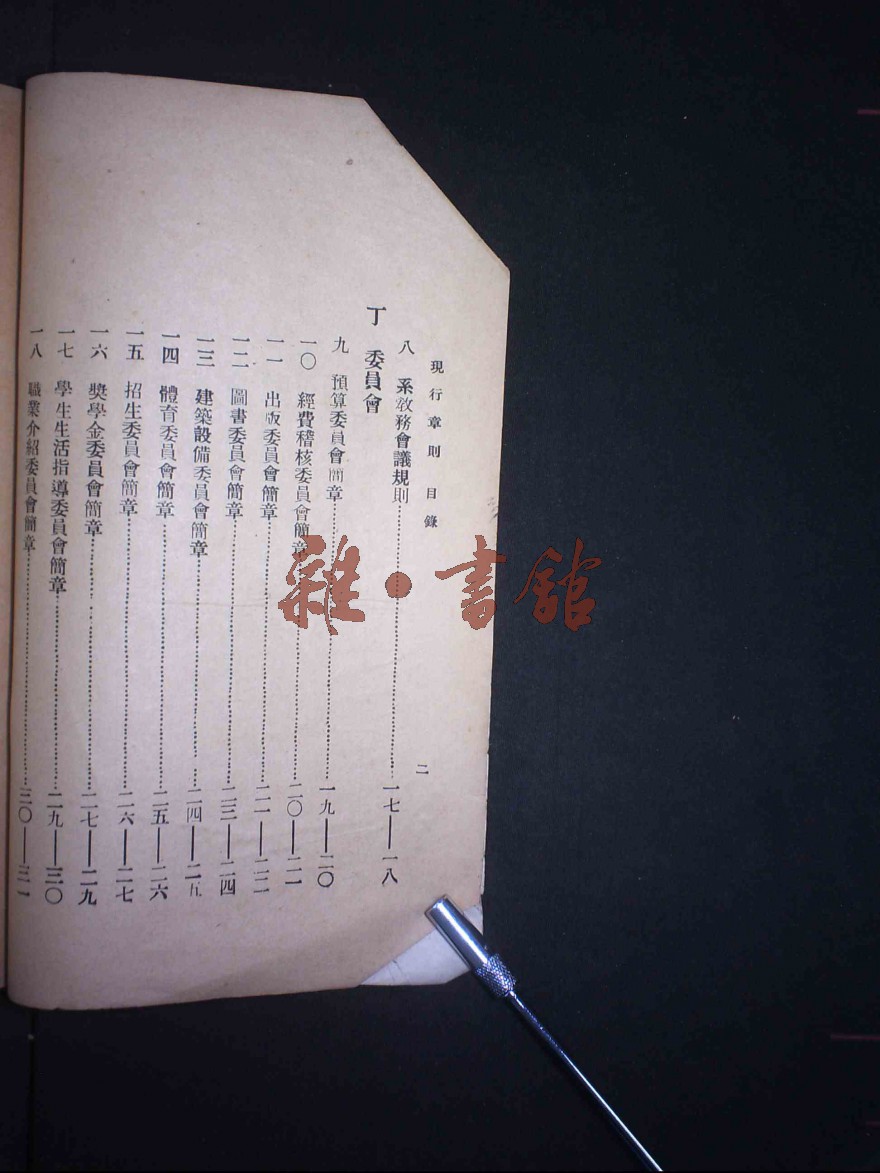 現行章則 目錄 二
八 系敎務會議規則 一七——一八
丁 委員會
九 預算委員會簡章 一九——二〇
一〇 經費稽核委員會簡章 二〇——二一
一一 出版委員會簡章 二一——二二
一二 圖書委員會簡章 二三——二四
一三 建築設備委員會簡章 二四——二五
一四 體育委員會簡章 二五——二六
一五 招生委員會簡章 二六——二七
一六 獎學金委員會簡章 二七——二九
一七 學生生活指導委員會簡章 二九——三〇
一八 職業介紹委員會簡章 三〇——三一
雜·書館